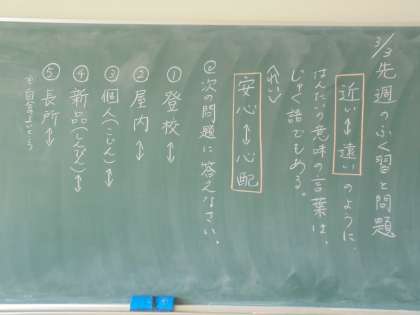 3/3 先週のふく習と問題
近い↔遠いのように、
はんたいの意味の言葉は、
じゅく語でもある。
(れい)
安心↔心配
◎次の問題に答えなさい。
①登校↔
②屋内↔
③個人(こじん)↔
④新品(しんぴん)↔
⑤長所↔